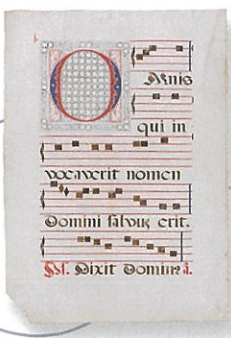 Omnis
qui in
vocaverit nomen
Domini salvus erit.
Ps. Dixit Dominus